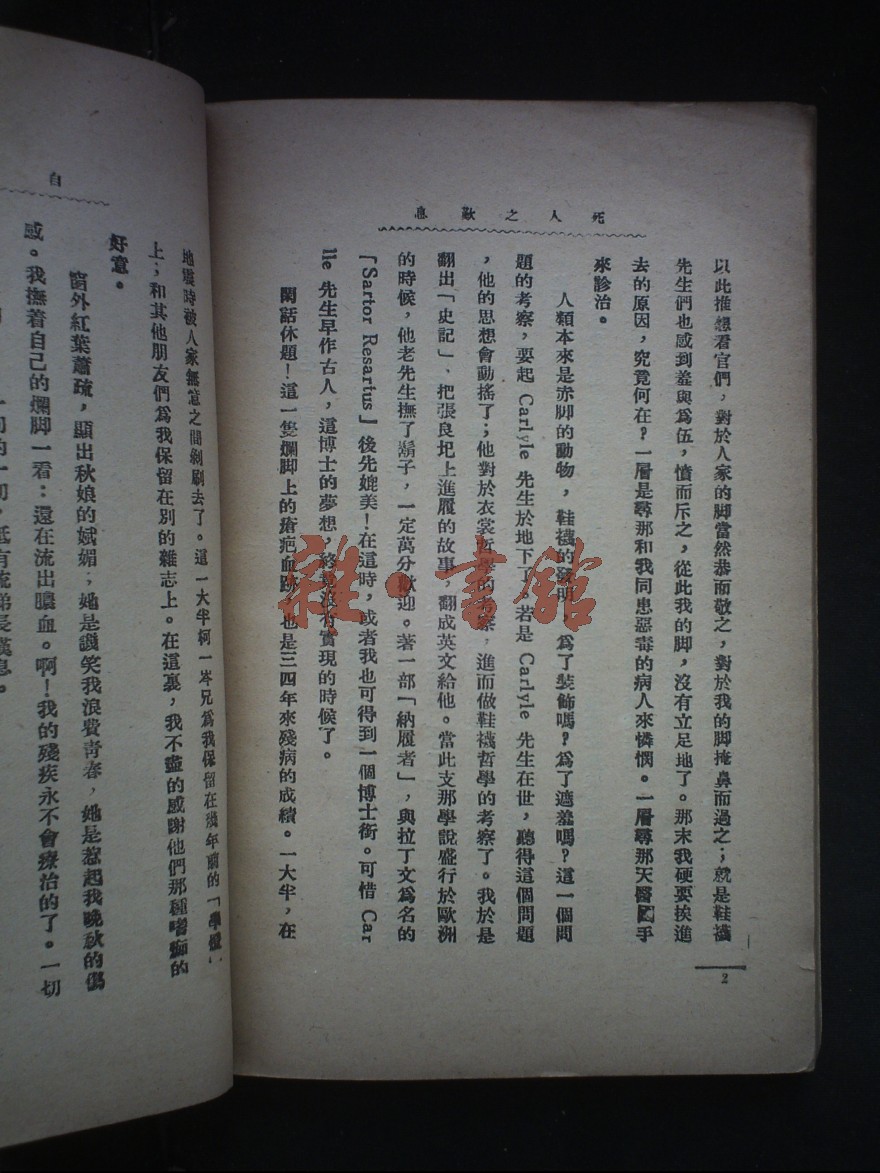 死人之歎息
以此推想看官們，對於人家的脚當然恭而敬之，對於我的脚掩鼻而過之；就是鞋襪
先生們也感到羞與爲伍，憤而斥之，從此我的脚，沒有立足地了。那末我硬要挨進
去的原因，究竟何在？一層是尋那和我同患惡毒的病人來憐憫。一層尋那天醫國手
來診治。
人類本來是赤脚的動物，鞋襪的發明，爲了裝飾嗎？爲了遮羞嗎？這一個問
題的考察，要起 Carlyle 先生於地下了，若是 Carlyle 先生在世，聽得這個問題
，他的思想會動搖了；他對於衣裳哲學的考察，進而做鞋襪哲學的考察了。我於是
翻出「史記」、把張良圯上進履的故事，翻成英文給他。當此支那學說盛行於歐洲
的時候，他老先生撫了鬍子，一定萬分歡迎。著一部「納履者」，與拉丁文爲名的
「Sartor Resartus」後先媲美！在這時，或者我也可得到一個博士銜。可惜 Car
lle 先生早作古人，這博士的夢想，終竟沒有實現的時候了。
閑話休題！這一隻爛脚上的瘡疤血跡，也是三四年來殘病的成績。一大半，在
2
雜·書館
自
地震時被人家無意之間剥刷去了。這一大半柯一岑兄爲我保留在幾年前的「學燈」
上；和其他朋友們爲我保留在別的雜志上。在這裏，我不盡的感謝他們那種嗜痂的
好意。
窗外紅葉蕭疏，顯出秋娘的斌媚；她是譏笑我浪費青春，她是惹起我晚秋的傷
感。我撫着自己的爛脚一看：還在流出膿血。啊！我的殘疾永不會療治的了。一切
的一切，祇有流涕長嘆息。